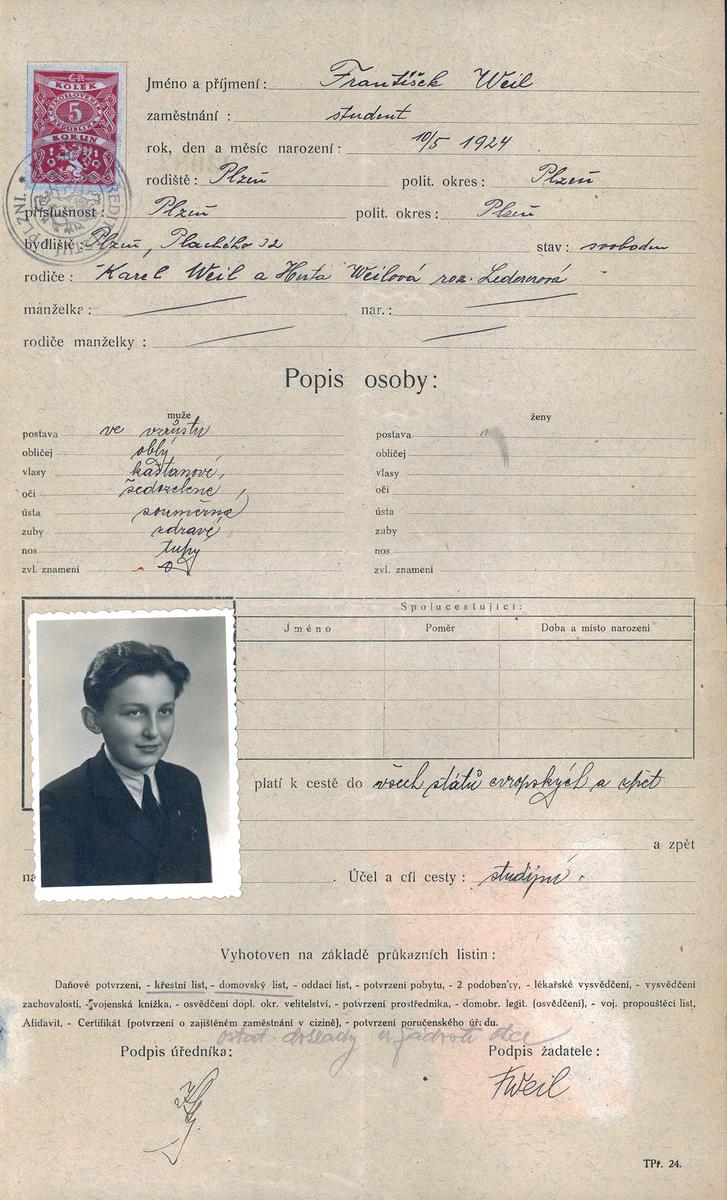 KOLEK
5
KORUN
Jméno a příjmení: František Weil
zaměstnání : student
rok, den a měsíc narození: 10/5 1924
rodiště: Plzeň polit. okres: Plzeň
příslušnost: Plzeň polit. okres: Plzeň
bydliště: Plzeň, Plachého 32 stav: svoboden
rodiče: Karel Weil a Herta Weilová roz. Ledererová
manželka: nar.:
rodiče manželky :
Popis osoby:
muže ženy
postava ve vzrůstu postava
obličej oblý obličej
vlasy kaštanové, vlasy
oči šedozelené oči
ústa souměrná ústa
zuby zdravé zuby
nos tupý nos
zvl. znamení zvl. znamení
Spolucestující:
Jméno Poměr Doba a místo narození
platí k cestě do všech států evropských a zpět
a zpět
na . Účel a cíl cesty: studijní.
Vyhotoven na základě průkazních listin:
Daňové potvrzení, - křestní list, - domovský list, - oddací list, - potvrzení pobytu, - 2 podobenky, - lékařské vysvědčení, - vysvědčení
zachovalosti, - vojenská knížka, - osvědčení dopl. okr. velitelství, - potvrzení prostředníka, - domobr. legit. (osvědčení), - voj. propouštěcí list,
Afidavit, - Certifikát (potvrzení o zajištěném zaměstnání v cizině), - potvrzení poručenského úřadu.
ostat. doklady u žádosti otce
Podpis úředníka: Podpis žadatele:
FWeil
TPř. 24.